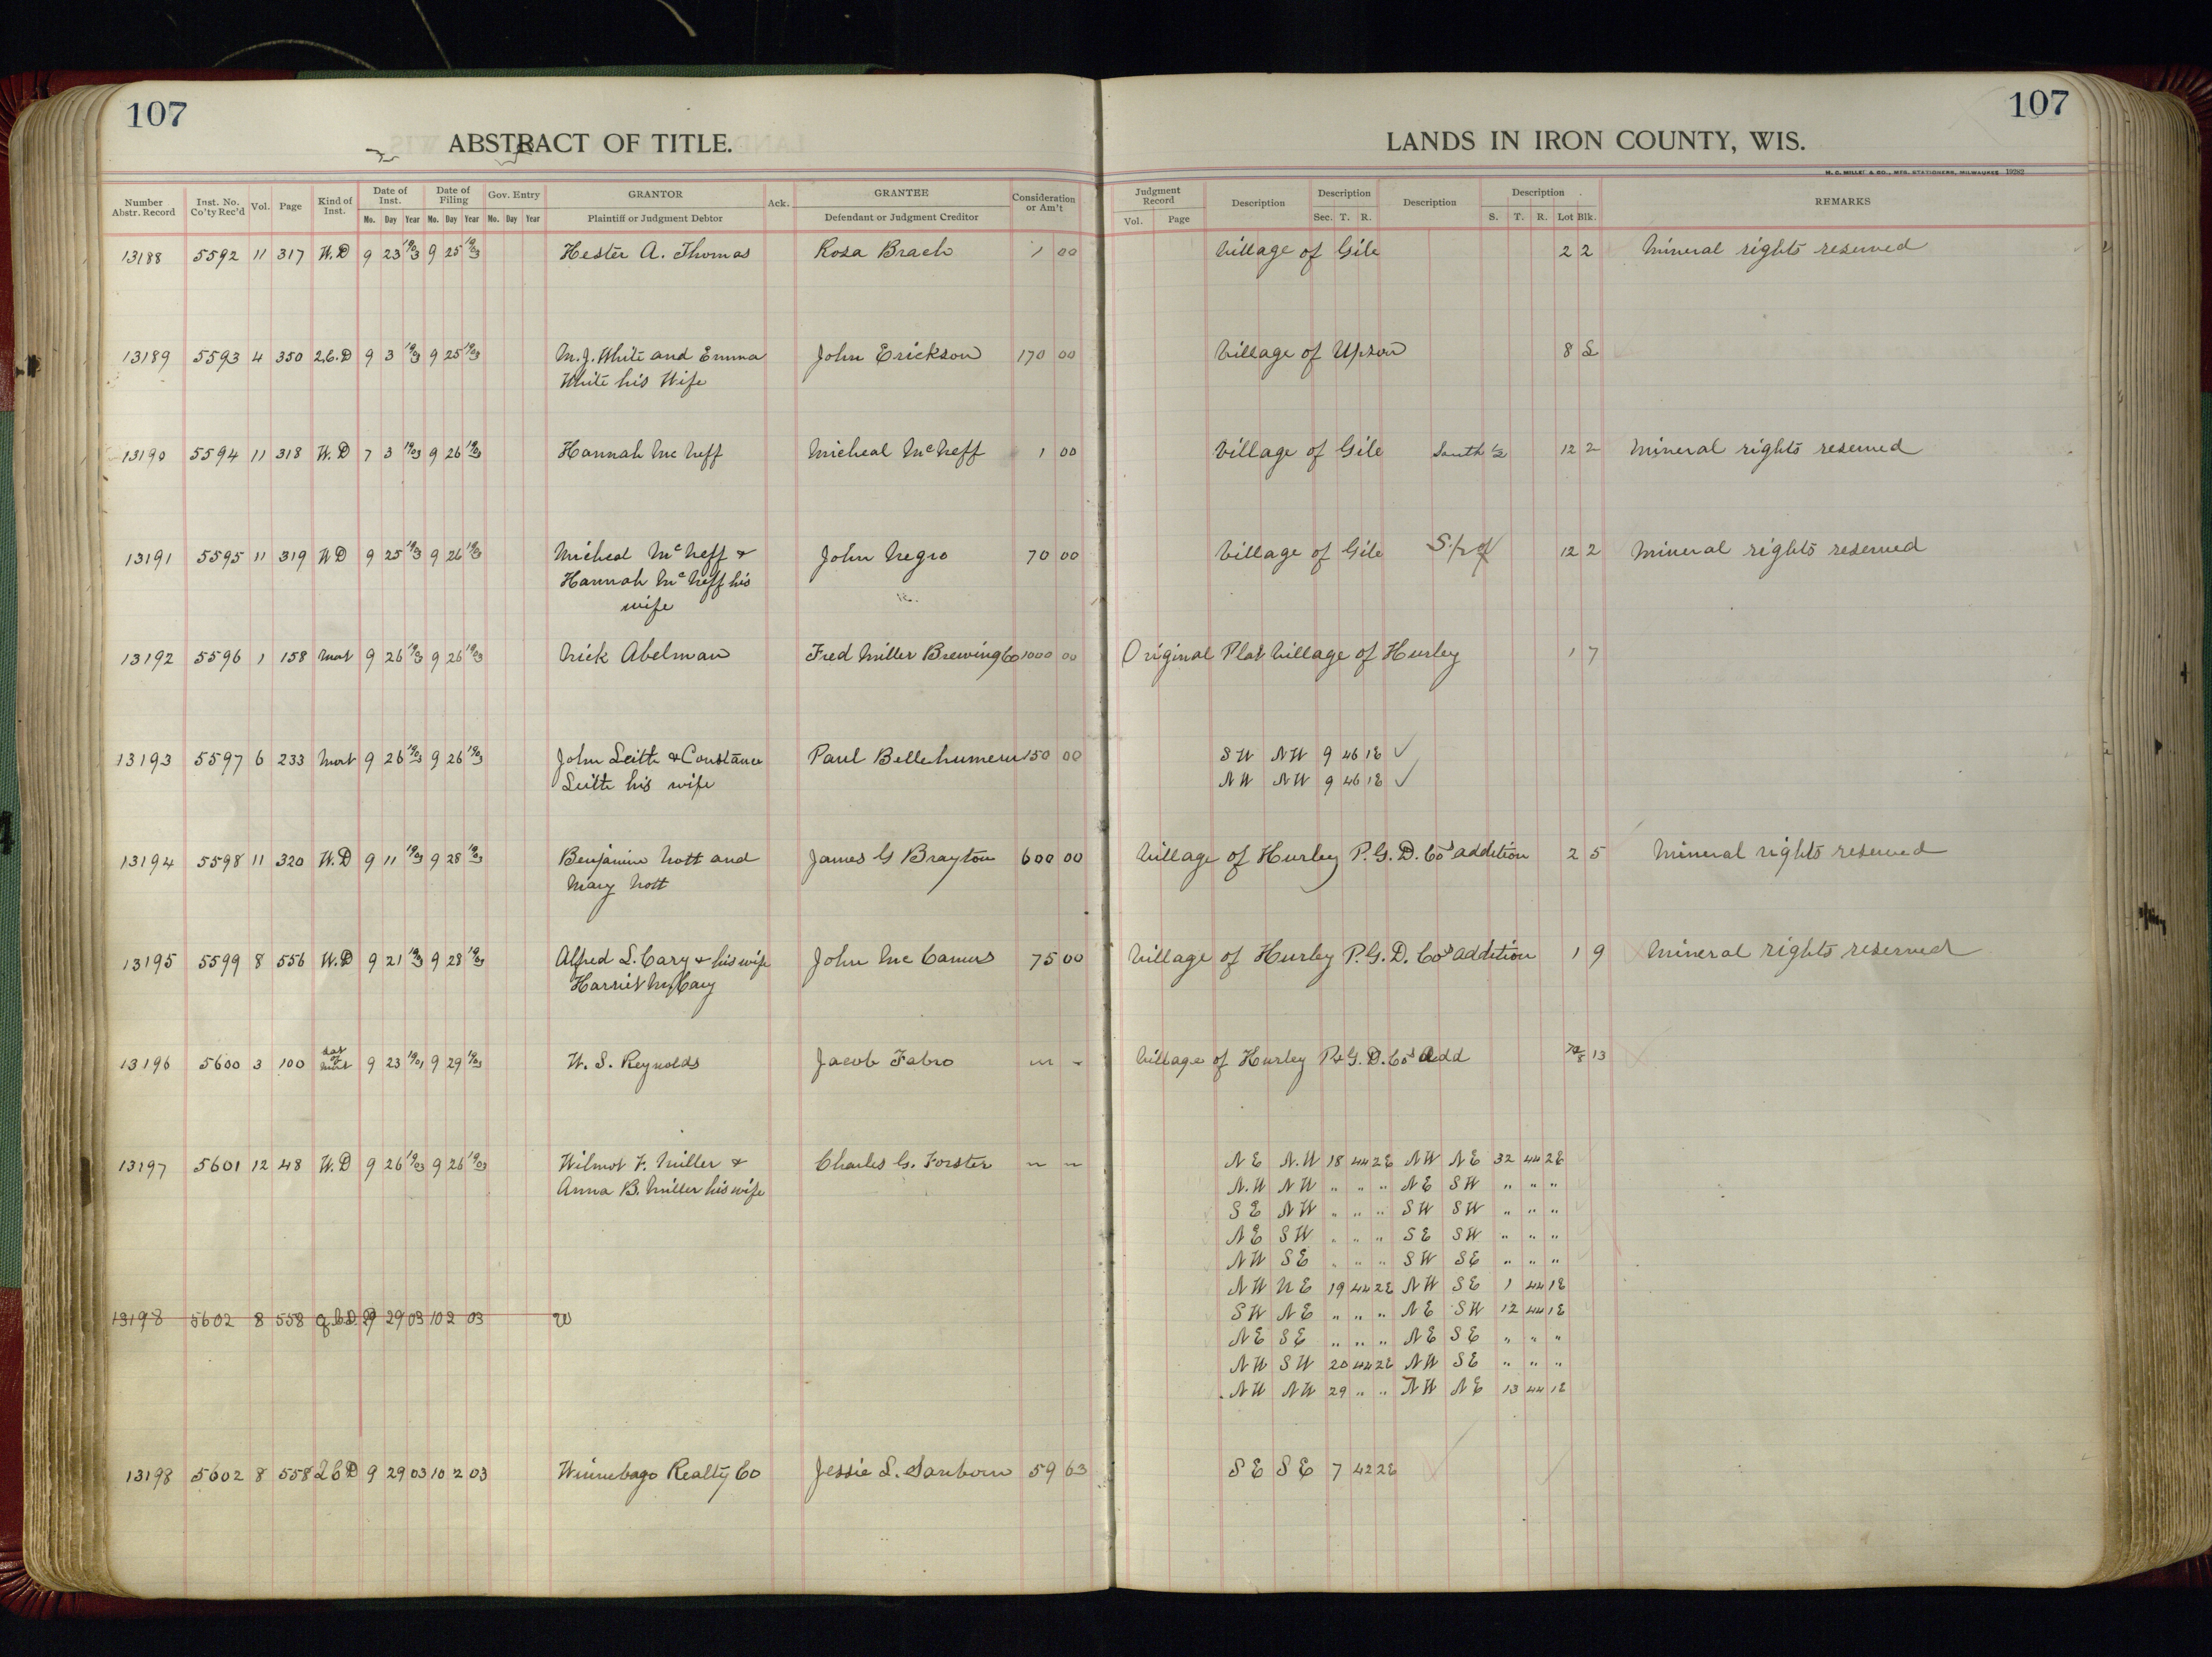 107
107
ABSTRACT OF TITLE.
LANDS IN IRON COUNTY, WIS.
H. C. MILLER & CO., MFG. STATIONERS, MILWAUKEE 19282
Number Abstr. Record Inst. No. Co'ty Rec'd Vol. Page Kind of Inst. Date of Inst. No. Day Year Date of Filing No. Day Year Gov. Entry No. Day Year GRANTOR Plaintiff or Judgment Debtor Ack. GRANTEE Defendant or Judgment Creditor Consideration or Am't Judgment Record Vol. Page Description Description Sec. T. R. Description Description S. T. R. Lot Blk. REMARKS
13188 5592 11 317 W.D 9 23 1903 9 25 1903 Hester A. Thomas Rosa Brach 1 00 Village of Gile 2 2 Mineral rights reserved
13189 5593 4 350 2.C.D 9 3 1903 9 25 1903 M.J. White and Emma John Erickson 170 00 Village of Upson 8 2
White his Wife
13190 5594 11 318 W.D 7 3 1903 9 26 1903 Hannah Mc Neff Micheal McNeff 1 00 Village of Gile South 1/2 12 2 Mineral rights reserved
13191 5595 11 319 WD 9 25 1903 9 26 1903 Micheal McNeff & John Negro 70 00 Village of Gile S 1/2 of 12 2 Mineral rights reserved
Hannah McNeff his
wife
13192 5596 1 158 Mort 9 26 1903 9 26 1903 Nick Abelman Fred Miller Brewing Co 1000 00 Original Plat Village of Hurley 1 7
13193 5597 6 233 Mort 9 26 1903 9 26 1903 John Leith & Constance Paul Bellehumeur 150 00 SW NW 9 46 1E ✓
Leith his wife NW NW 9 46 1E ✓
13194 5598 11 320 W.D 9 11 1903 9 28 1903 Benjamin Nott and James G Brayton 600 00 Village of Hurley P.G.D. Co's addition 2 5 Mineral rights reserved
Mary Nott
13195 5599 8 556 W.D 9 21 1903 9 28 1903 Alfred L. Cary & his wife John Mc Camus 75 00 Village of Hurley P.G.D. Co's addition 1 9 Mineral rights reserved
Harriet M. Cary
13196 5600 3 100 Sat of Mort 9 23 1901 9 29 1903 W. S. Reynolds Jacob Fabro Village of Hurley P.G.D. Co's Add 13
13197 5601 12 48 W.D 9 26 1903 9 26 1903 Wilmot F. Miller & Charles G. Forster NE N.W 18 44 2E NW NE 32 44 2E
Anna B. Miller his wife N.W NW " " " NE SW " " "
SE NW " " " SW SW " " "
NE SW " " " SE SW " " "
NW SE " " " SW SE " " "
NW NE 19 44 2E NW SE 1 44 1E
13198 5602 8 558 Q.C.D 9 29 03 10 2 03 W SW NE " " " NE SW 12 44 1E
NE SE " " " NE SE " " "
NW SW 20 44 2E NW SE " " "
NW NW 29 " " NW NE 13 44 1E
13198 5602 8 558 2CD 9 29 03 10 2 03 Winnebago Realty Co Jessie L. Sanborn 59 63 SE SE 7 42 2E